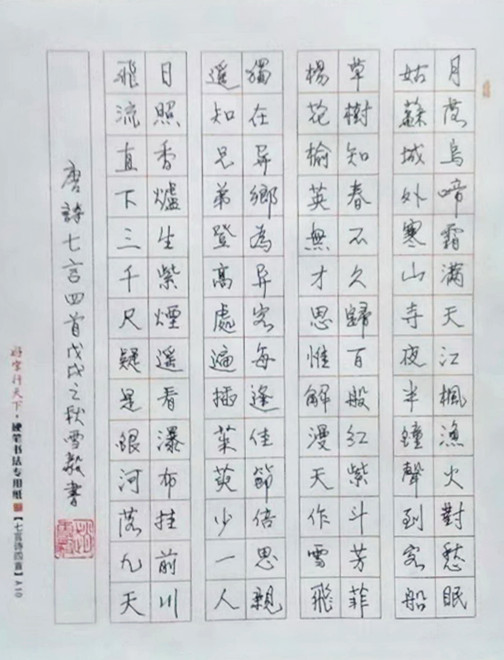 月落烏啼霜滿天江楓漁火對愁眠
姑蘇城外寒山寺夜半鐘聲到客船
草樹知春不久歸百般紅紫斗芳菲
楊花榆莢無才思惟解漫天作雪飛
獨在异鄉為异客每逢佳節倍思親
遥知兄弟登高處遍插茱萸少一人
日照香爐生紫煙遥看瀑布挂前川
飛流直下三千尺疑是銀河落九天
唐詩七言四首戊戌之秋雪毅書
好字行天下·硬笔书法专用纸【七言诗四首】A10